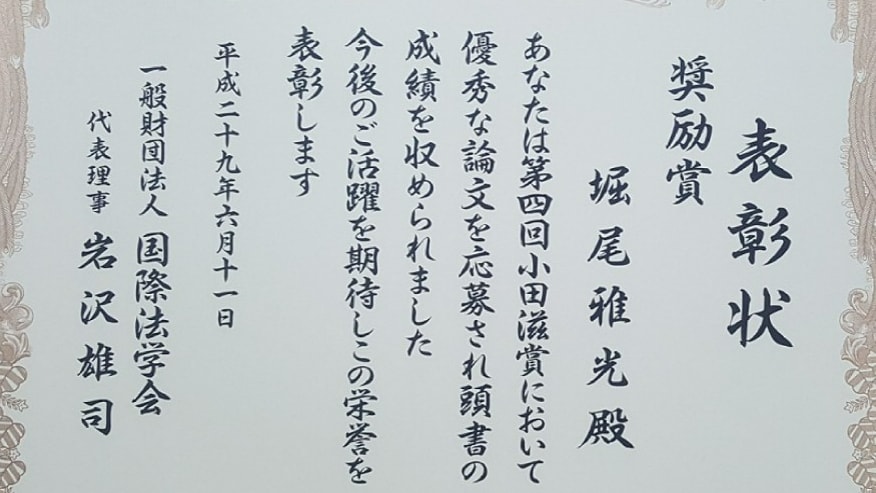 表彰状
奨励賞
堀尾雅光殿
あなたは第四回小田滋賞において
優秀な論文を応募され頭書の
成績を収められました
今後のご活躍を期待しこの栄誉を
表彰します
平成二十九年六月十一日
一般財団法人 国際法学会
代表理事 岩沢雄司